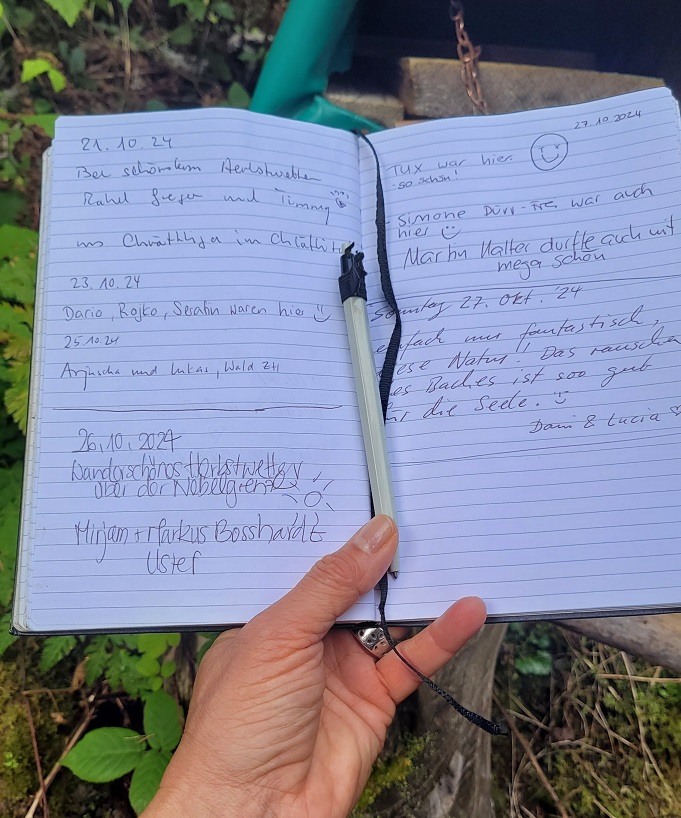 21.10.24
Bei schönstem Herbstwetter
Rahel und Timmy
im
23.10.24
Dario, Rojko, Serafin waren hier
25.10.24
und Lukas, Wald ZH
26.10.2024
Wunderschönes Herbstwetter
über der Nebelgrenze
Mirjam + Markus Bosshardt
Uster
27.10.2024
TUX war hier
so schön!
Simone Dürr-Frei war auch
hier
Martin Halter durfte auch mit
mega schön
Sonntag 27. Okt. '24
einfach nur fantastisch,
diese Natur!! Das rauschen
des Baches ist soo gut
für die Seele.
Dani & Lucia